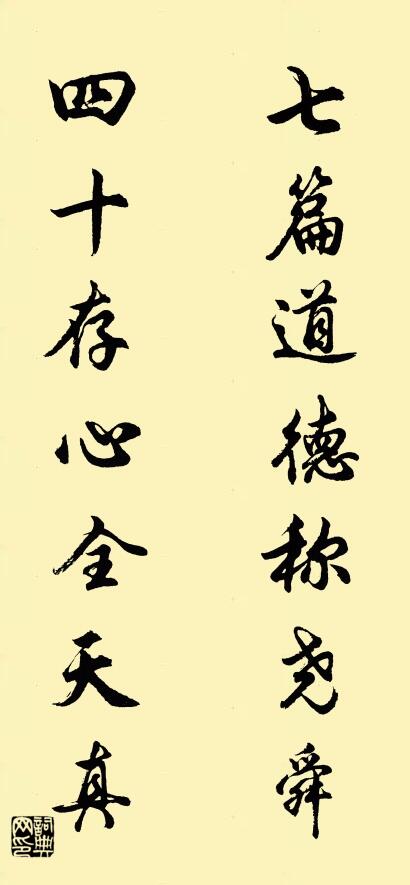 七篇道德称尧舜
四十存心全天真
詞典
网印